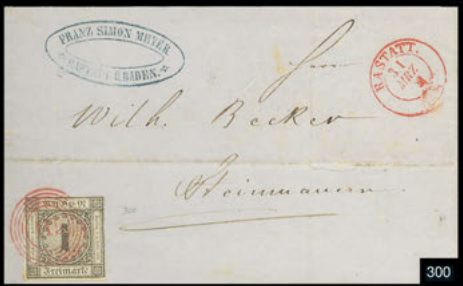 FRANZ SIMON MEYER
RASTATT B. BADEN.
RASTATT.
31
MRZ
Wilh. Becker
Steinmauern.
1
Freimarke
300